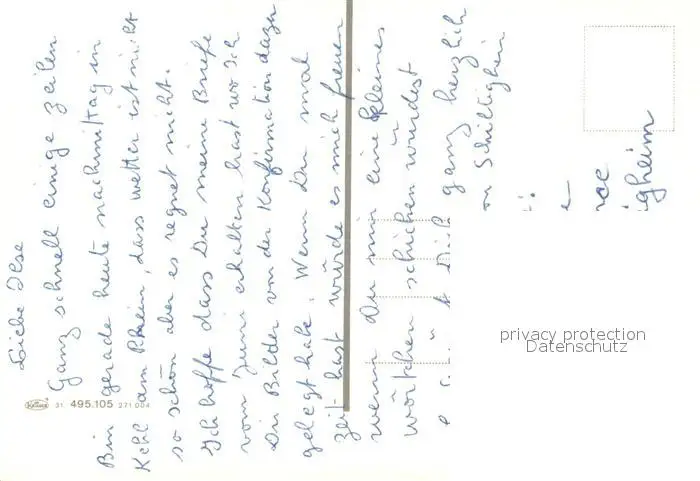 Liebe Ilse
Ganz schnell einige Zeilen
Bin gerade heute nachmittag in
Kehl am Rhein, dass wetter ist nicht
so schön aber es regnet nicht.
Ich hoffe dass Du meine Briefe
vom Juni erhalten hast wo ich
Dir Bilder von der Konfirmation dazu
gelegt habe. Wenn Du mal
Zeit hast würde es mich freuen
wenn Du mir eine kleines
wörtchen schicken würdest
Dich ganz herzlich
Schiltigheim
igheim
Krüger 31. 495.105 271 004
privacy protection
Datenschutz